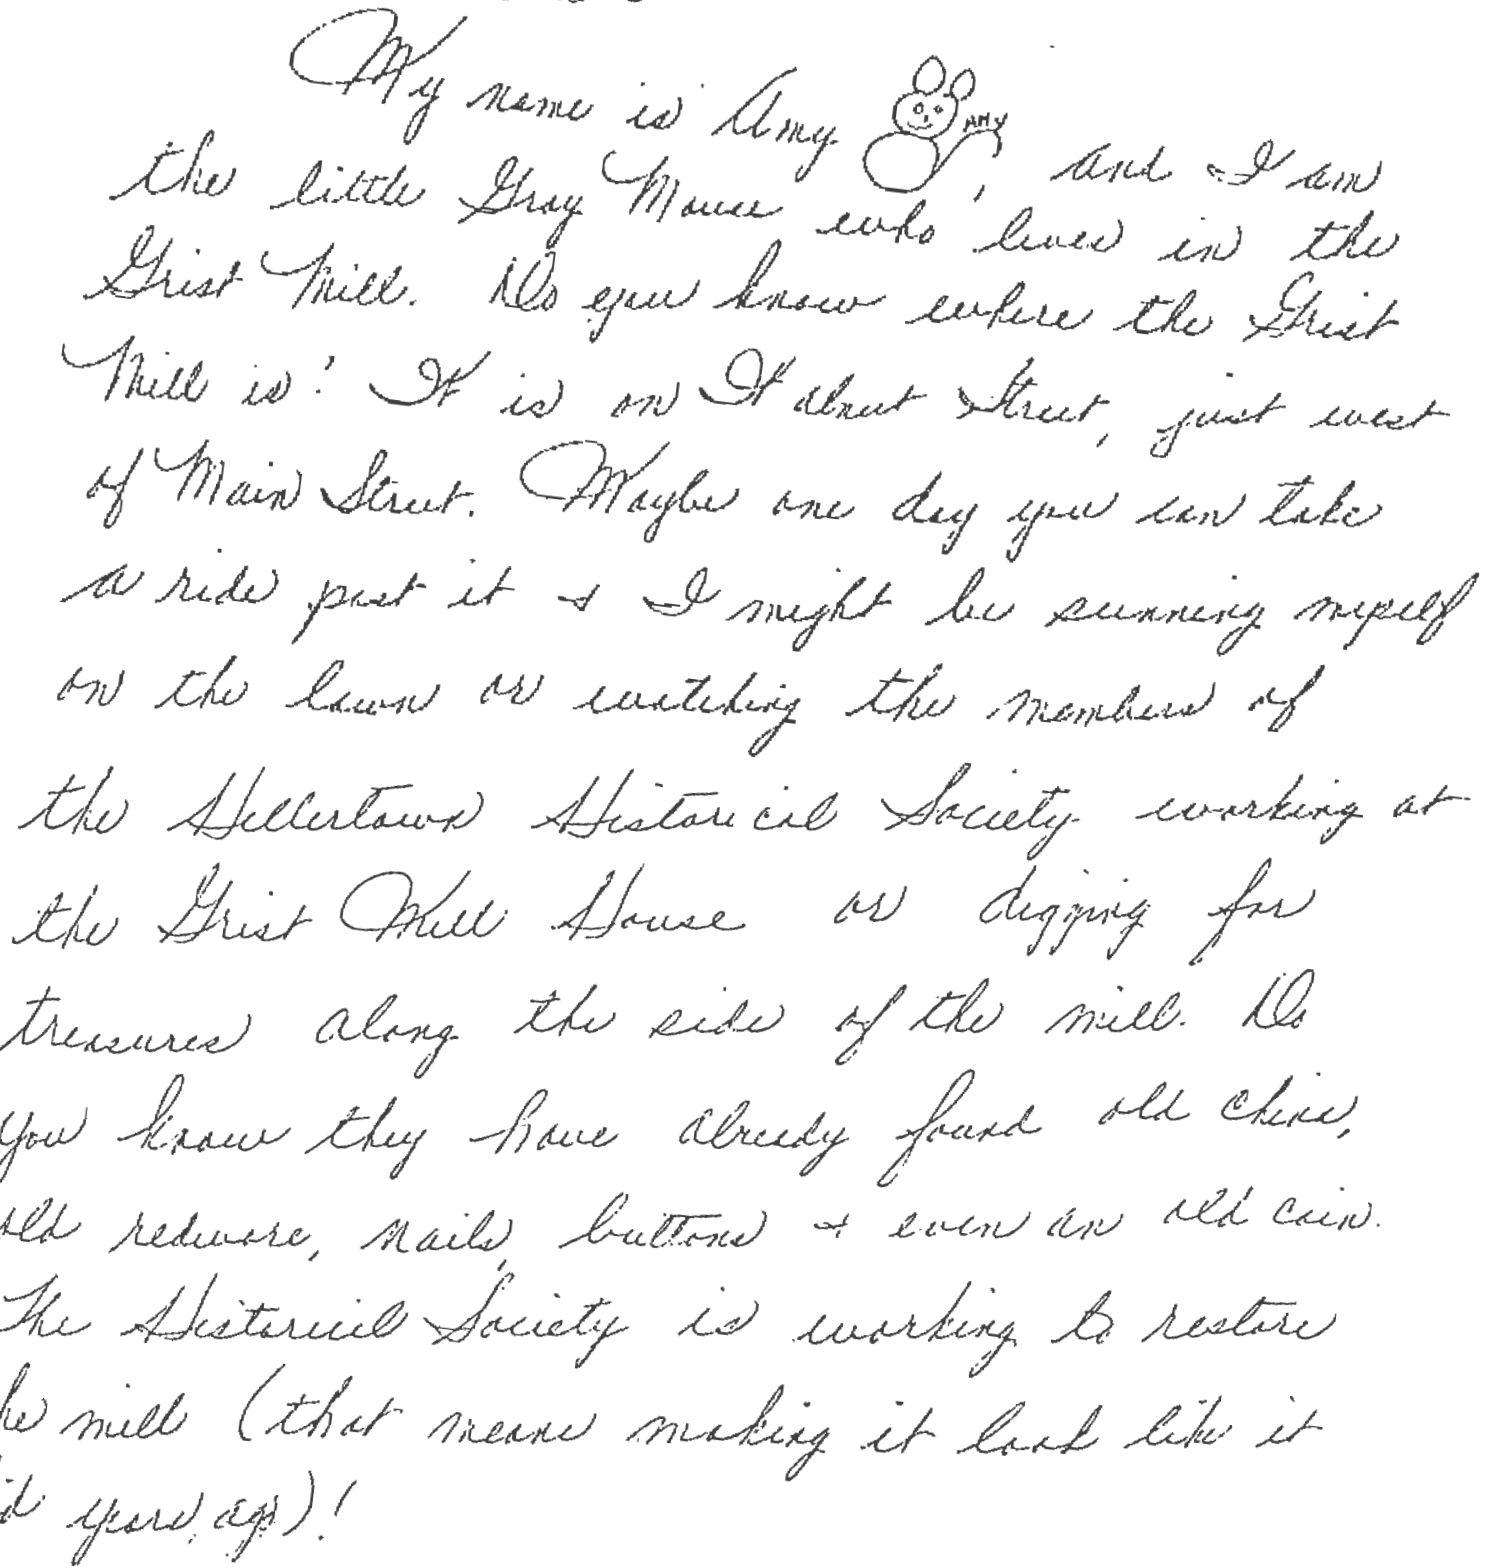 My name is Amy AMY, and I am
the little Gray Mouse who lives in the
Grist Mill. Do you know where the Grist
Mill is? It is on Walnut Street, just west
of Main Street. Maybe one day you can take
a ride past it & I might be sunning myself
on the lawn or watching the members of
the Hellertown Historical Society working at
the Grist Mill House or digging for
treasures along the side of the mill. Do
you know they have already found old china,
old redware, nails, buttons & even an old coin.
The Historical Society is working to restore
he mill (that means making it look like it
id years ago)!